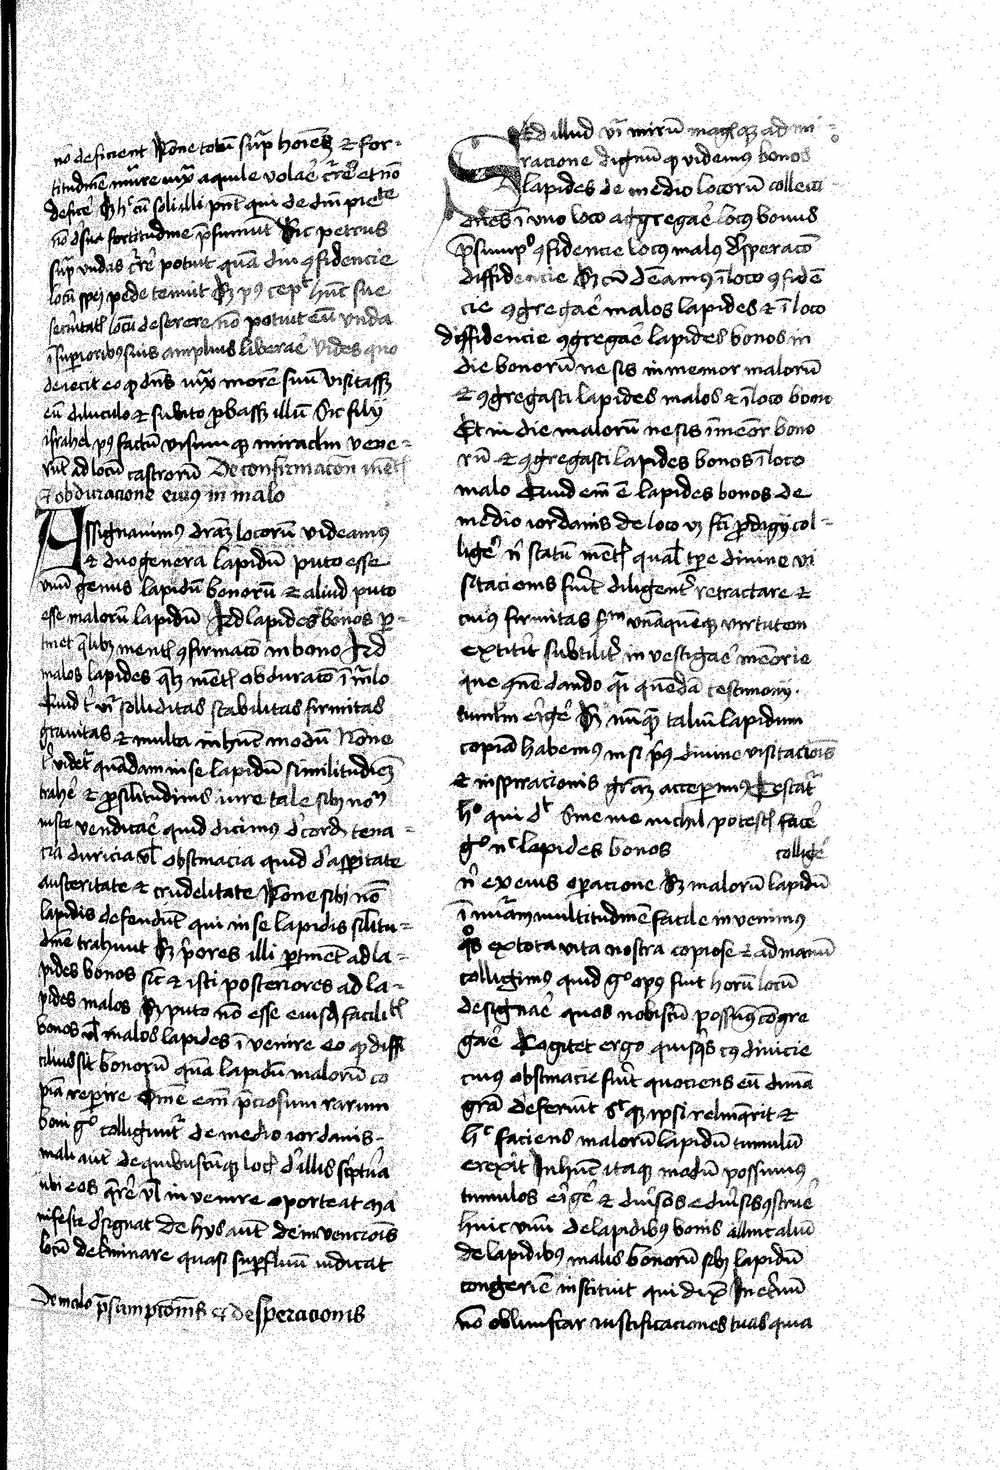 nō deficient None totū suṗ hoiēs et for-
titudinē mutare vix aquile volaē c̄rēr et nō
deficē Sꝫ hͨ cū soli illi pn̄t qui de dn̄i pietate
nō de sua fortitudine p̄sumūt Sic petrus
suṗ vndas c̄rēre potuit quā diu ꝯfidencie
locū spei pede tenuit Sꝫ pꝰ cepͭ hūc sue
secūritatꝭ locū deserere nō potuit eū vnda
ī supioribꝰ suis amplius liberaē Vides quo
deiecit eo ꝙ dn̄s iuxͣ morē suū visitassꝫ
eū diluculo et subito ꝓbassꝫ illū Sic filij
israhel pꝰ factū visum qꝫ miraclm̄ vene-
rūt ad locū castrorū De confirmacōn mētꝭ
et obduracione eius in malo
Assignauimꝰ dr̄aꝫ locorū videamꝰ
et duo genera lapidū puto esse
vnū genus lapidū bonorū et aliud puto
esse malorū lapidū Ad lapides bonos ꝑ-
tinet q̄libꝫ mentꝭ ꝯfirmacō in bono Ad
malos lapides q̄lꝫ mētꝭ obduracō ī malo
Quid ē vͬ solliditas stabilitas firmitas
grauitas et multa in hūc modū None
tͥ videtͬ quādam in se lapidū similitudinē
trahē et ꝓ similtudinis iure tale sibi nomn̄
iuste vendicaē quid dicimꝰ de corde tena-
cia duricia vl̄ obstinacia quid de asꝑitate
austeritate et crudelitate None sibi nō
lapidis defendūt qui in se lapidis silitu-
dinē trahunt Sꝫ p̄ores illi ꝑtinēt ad la-
pides bonos sic̄ et isti posteriores ad la-
pides malos Sꝫ puto nō esse eiusdē facilitͭꝭ
bonos vl̄ malos lapides ī venire eo ꝙ diffi
cilius sit bonorū quā lapidū malorū co
piā reꝑire Om̄e em̄ p̄ciosum rarum
boni gͦ colliguntͬ de medio iordanis
mali aut̄ de quibuscūqꝫ locꝭ de illis sc̄ptͣa
ubi eos q̄rē vl̄ in venire oporteat ma
nifeste designat De hijs aut̄ de invencionis
locū delminare quasi suꝑfluū iudicat
De malo p̄sumptiōnis et desperacionis
Sed illud vͬ mirū magis qꝫ ad mi-
racione dignū ꝙ videmꝰ bonos
lapides de medio locorū collecti
om̄es ī vno loco aggregaē locꝰ bonus
p̄sumpͦ ꝯfidencie locꝰ malꝰ desperacō
diffidencie Sꝫ cū deam̄ꝰ ī loco ꝯfidē
cie ꝯgregaē malos lapides et ī loco
diffidencie ꝯgregaē lapides bonos in
die bonorū ne sis inmemor malorū
et ꝯgregasti lapides malos et ī loco bono
Et in die malorū ne sis īmēor bono
rū et ꝯgregasti lapides bonos ī loco
malo Quid em̄ ē lapides bonos de
medio iordanis de loco vꝫ sc̄i ꝓdigij col-
ligē n̄ statū mētꝭ qual̄ tꝑe divine vi
sitacionis fuīt diligentͬ retractare et
cuiꝰ firmitas ſm vnāquēqꝫ virtutem
extitit subtilitͬ in vestigaē memorie
que ꝯmēdando q̄i quēdā testimonij
tumlm̄ erigē Sꝫ nūq̄ talium lapidum
copiā habemꝰ nisi pͥꝰ divine visitaciōis
et inspiracionis graꝫ acceꝑimꝰ Testatͬ
hͦ qui dͭ Sine me nichil potestis facē
gͦ nͨ lapides bonos colligē
n̄ ex eius oꝑacione Sꝫ malorū lapidū
ī nūam multitudinē facile invenimus
qͦs ex tota vita nostra copiose et ad manū
colligimꝰ quid gͦ opꝰ fuit horū locū
designaē quos nobiscū possumꝰ cōgre
gaē Cogitet ergo quisqꝫ cꝰ duricie
cuius obstinacie fuit quociens eū diuīa
grā deserūit sͨ qꝫ ipsi relinq̄rit et
hͨ faciens malorū lapidū tumulū
erexit In hūc itaqꝫ modū possumꝰ
tumulos erigē et diūsos e diūsis ꝯstruē
huic vnū de lapidibꝰ bonis illinc aliū
de lapidibꝰ malis bonorū sibi lapidū
congeriē instituit qui dixͭ In et̄nū
nō obliuiscar iustificaciones tuas quia